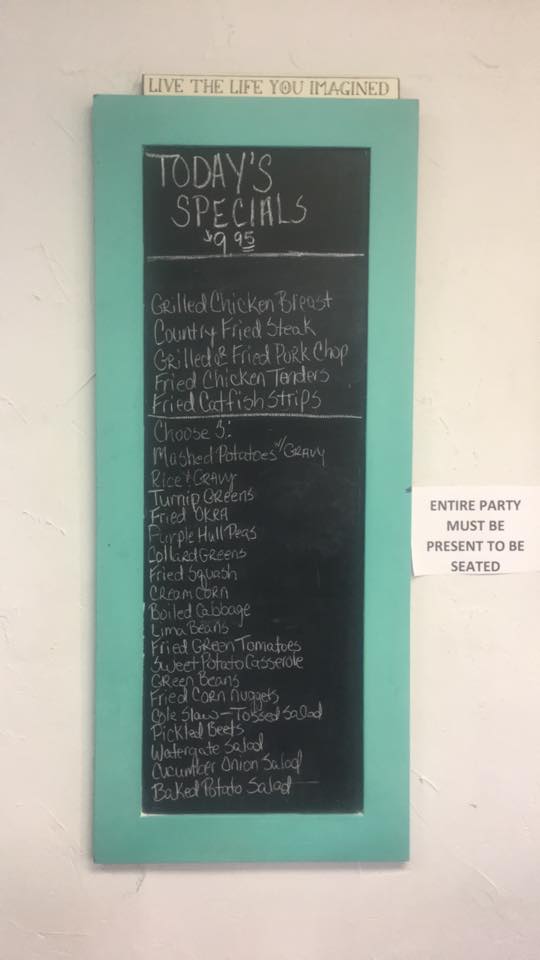 LIVE THE LIFE YOU IMAGINED
TODAY'S
SPECIALS
$9.95
Grilled Chicken Breast
Country Fried Steak
Grilled & Fried Pork Chop
Fried Chicken Tenders
Fried Catfish Strips
Choose 3:
Mashed Potatoes w/ GRAVY
Rice & GRAVY
Turnip GREENS
Fried OKRA
Purple Hull Peas
Collard GREENS
Fried Squash
CREAM CORN
Boiled Cabbage
Lima Beans
Fried Green Tomatoes
Sweet Potato Casserole
Green Beans
Fried CORN Nuggets
Cole Slaw - Tossed Salad
Pickled Beets
Watergate Salad
Cucumber Onion Salad
Baked Potato Salad
ENTIRE PARTY
MUST BE
PRESENT TO BE
SEATED